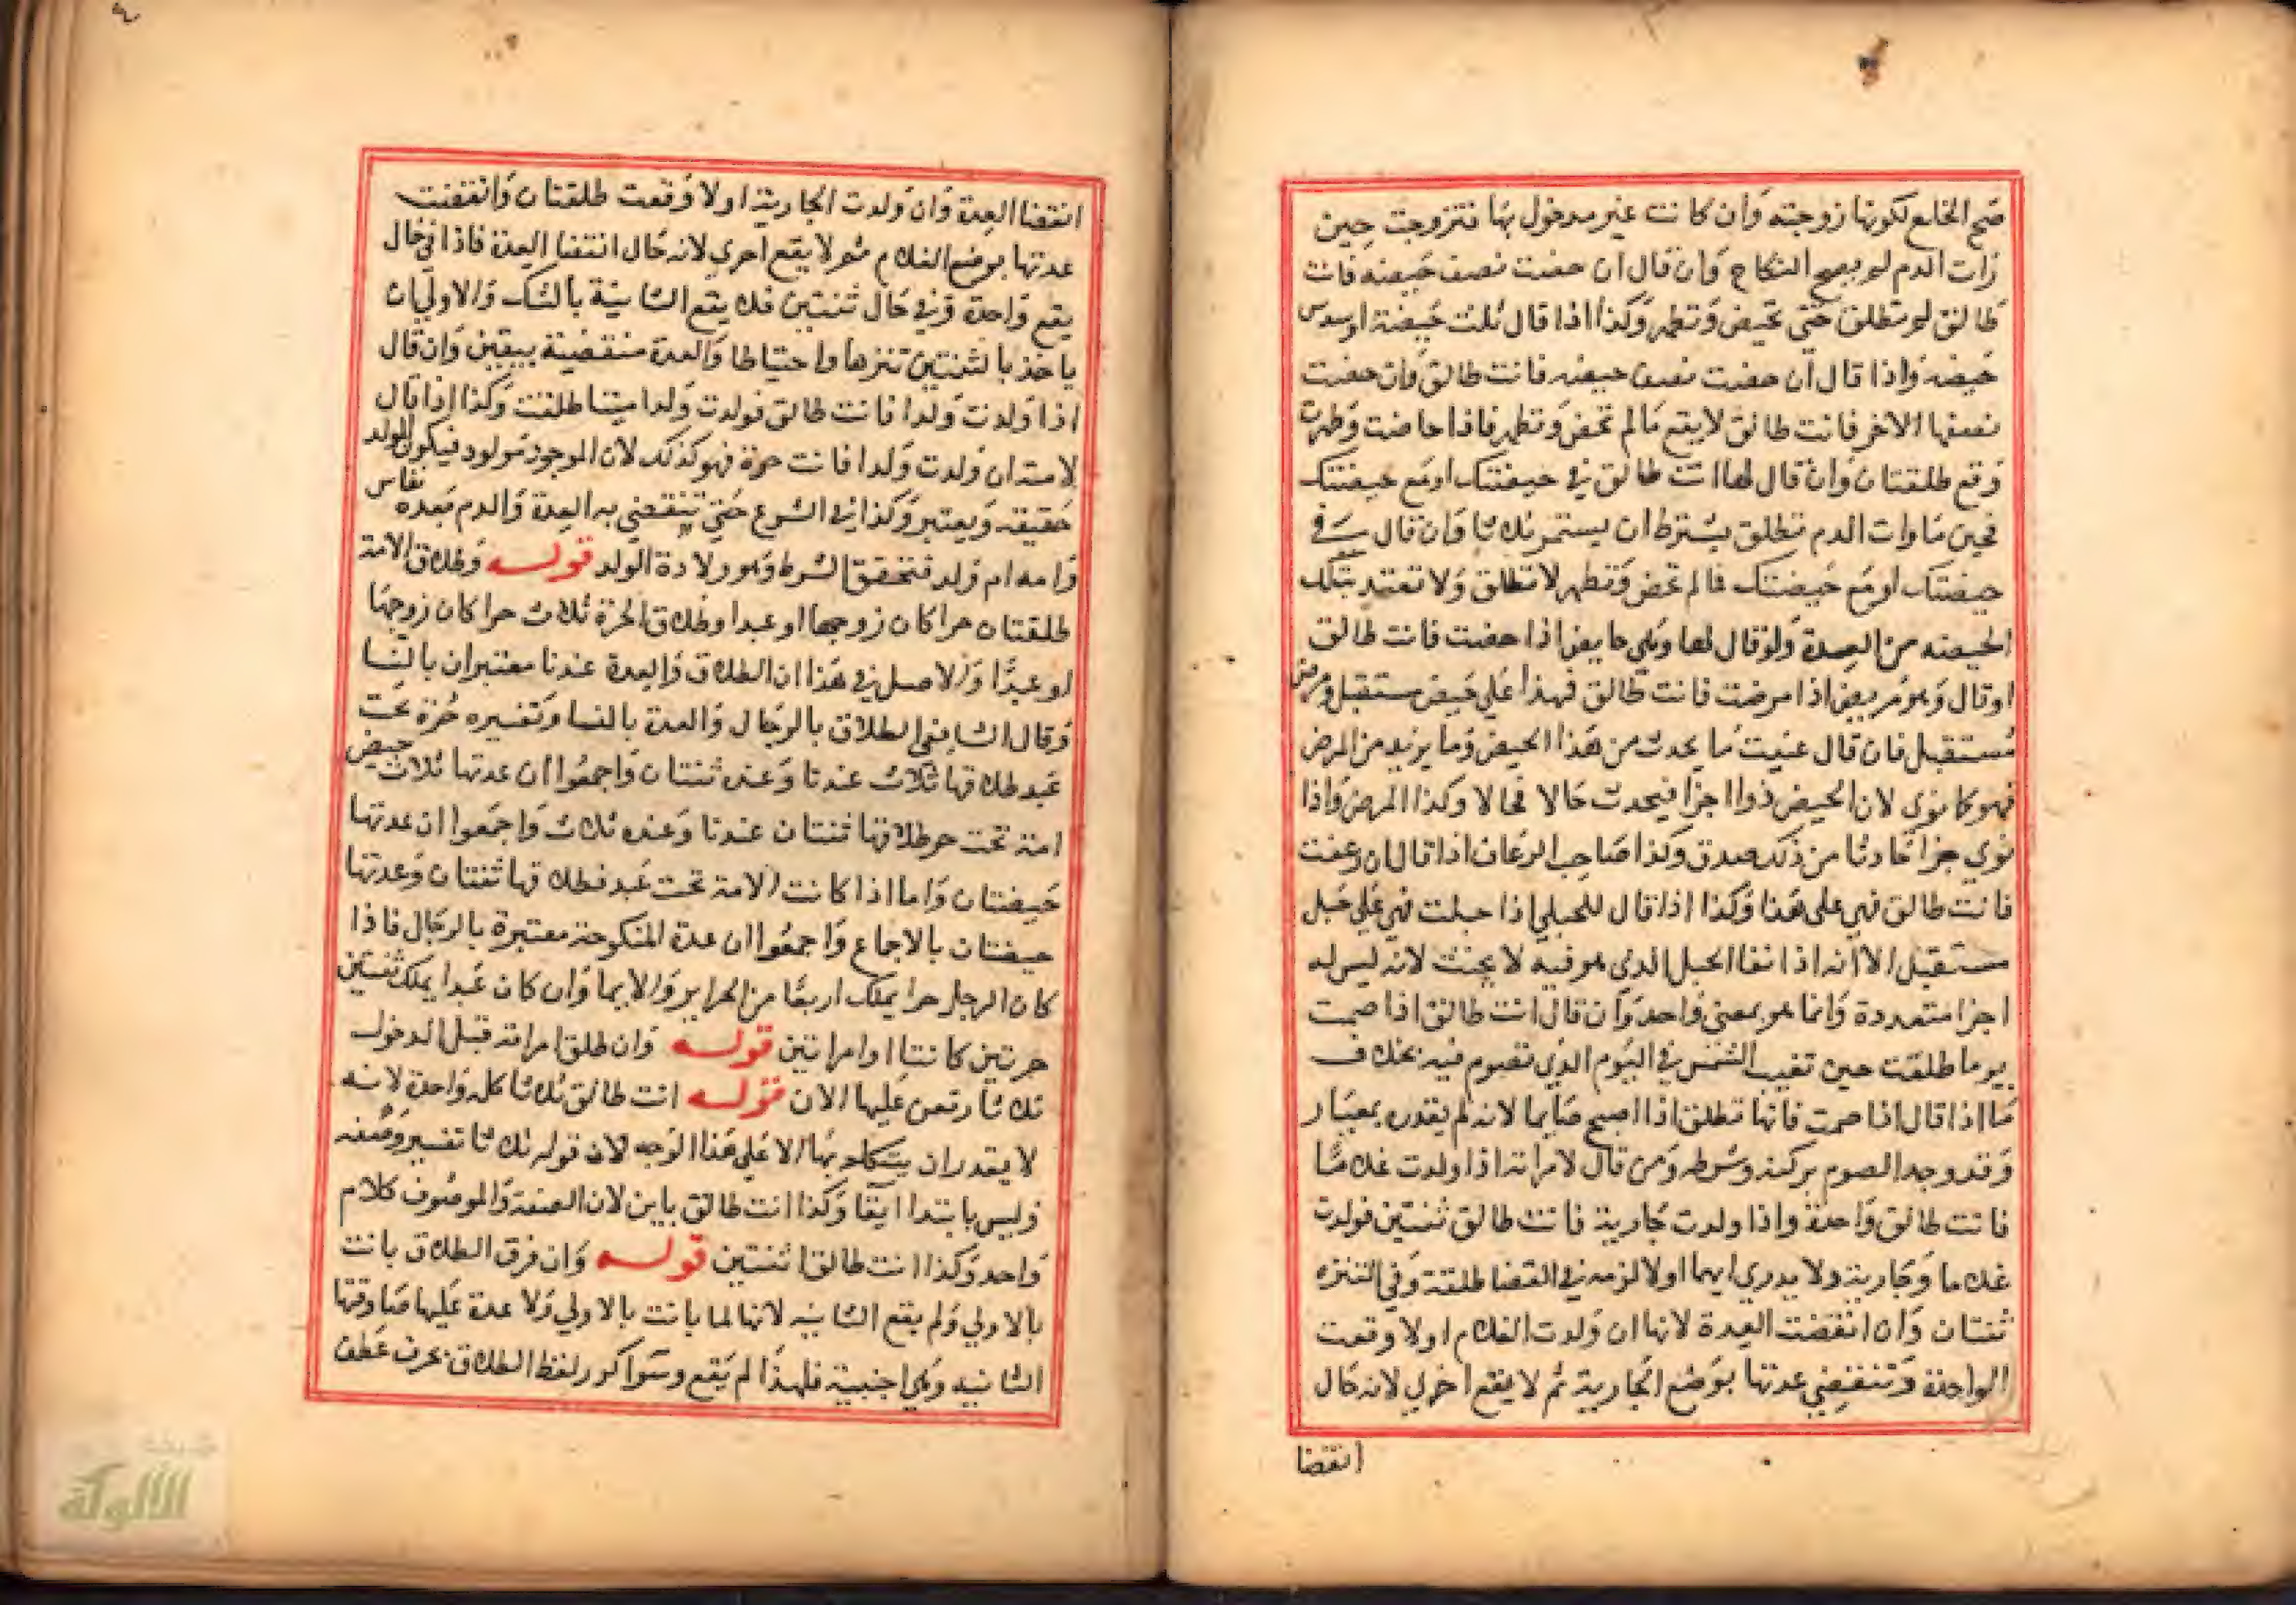 صح الخلع لكونها زوجته وان كانت غير مدخول بها فتزوجت حين
رات الدم لم يصح النكاح وان قال ان حضت نصف حيضه فانت
طالق لم تطلق حتى تحيض وتطهر وكذا اذا قال ثلث حيضة او سدس
حيضه واذا قال ان حضت نصف حيضه فانت طالق وان حضت
نصفها الاخر فانت طالق لا يقع ما لم تحض وتطهر فاذا حاضت وطهرت
وقع طلقتان وان قال لها انت طالق في حيضتك او مع حيضتك
فحين ما رات الدم تطلق بشرط ان يستمر ثلاثا وان قال في
حيضتك او مع حيضتك فما لم تحض وتطهر لا تطلق ولا تعتد بتلك
الحيضه من العدة ولو قال لها وهي حايض اذا حضت فانت طالق
او قال وهو مريض اذا مرضت فانت طالق فهذا على حيض مستقبل ومرض
مستقبل فان قال عنيت ما يحدث من هذا الحيض وما يزيد من المرض
فهو كما نوى لان الحيض ذو اجزا فيحدث حالا فحالا وكذا المرض واذا
نوي جزا حادثا من ذلك صدق وكذا صاحب الرعاف اذا قال ان رعفت
فانت طالق فهي على هذا وكذا اذا قال للحبلى اذا حبلت فهي على حبل
مستقبل الا انه اذا نفا الحبل الذي هو فيه لا يحنث لانه ليس له
اجزا متعددة وانما هو بمعنى واحد وان قال انت طالق اذا صمت
يوما طلقت حين تغيب الشمس في اليوم الذي تصوم فيه بخلاف
ما اذا قال اذا صمت فانها تطلق اذا اصبح صايما لانه لم يقدره بمعيار
وقد وجد الصوم بركنه وشرطه ومن قال لامراته اذا ولدت غلاما
فانت طالق واحدة واذا ولدت جارية فانت طالق ثنتين فولدت
غلاما وجارية ولا يدري ايهما اولا لزمه في القضا طلقة وفي التنزه
ثنتان وان انقضت العدة لانها ان ولدت الغلام اولا وقعت
الواحدة وتنقضي عدتها بوضع الجارية ثم لا يقع اخرى لانه حال
انقضا
انقضا العدة وان ولدت الجارية اولا وقعت طلقتان وانقضت
عدتها بوضع الغلام ثم لا يقع اخرى لانه حال انقضا العدة فاذا في حال
يقع واحدة وفي حال ثنتين فلا يقع الثانية بالشك والاولى ان
ياخذ بالثنتين تنزها واحتياطا والعدة منقضية بيقين وان قال
اذا ولدت ولدا فانت طالق فولدت ولدا ميتا طلقت وكذا اذا قال
لامته ان ولدت ولدا فانت حرة فهو كذلك لان الموجود مولود فيكون الولد
حقيقه ويعتبر وكذا في الشرع حتى تنقضي به العدة والدم بعده نفاس
وامه ام ولد فتحقق الشرط وهو ولادة الولد قوله وطلاق الامة
طلقتان حرا كان زوجها او عبدا وطلاق الحرة ثلاث حرا كان زوجها
او عبدا والاصل في هذا ان الطلاق والعدة عندنا معتبران بالنسا
وقال الشافعي الطلاق بالرجال والعدة بالنسا وتفسيره حرة تحت
عبد طلاقها ثلاث عندنا وعنده ثنتان واجمعوا ان عدتها ثلاث حيض
امة تحت حر طلاقها ثنتان عندنا وعنده ثلاث واجمعوا ان عدتها
حيضتان واما اذا كانت الامة تحت عبد فطلاقها ثنتان وعدتها
حيضتان بالاجماع واجمعوا ان عدة المنكوحة معتبرة بالرجال فاذا
كان الرجل حرا يملك اربعا من الحراير والايما وان كان عبدا يملك ثنتين
حرتين كانتا او امراتين قوله وان طلق امراته قبل الدخول
ثلاثا وقعن عليها الان قوله انت طالق ثلاثا كله واحدة لانه
لا يقدر ان يتكلم بها الا على هذا الوجه لان قوله ثلاثا تفسير وصفه
وليس بابتدا ايقا وكذا انت طالق باين لان الصفة والموصوف كلام
واحد وكذا انت طالقا ثنتين قوله وان فرق الطلاق بانت
بالاولي ولم يقع الثانيه لانها لما بانت بالاولي ولا عدة عليها صادفتها
الثانيه وهي اجنبية فلهذا لم يقع وسوا كرر لفظ الطلاق بحرف عطف
الألوكة